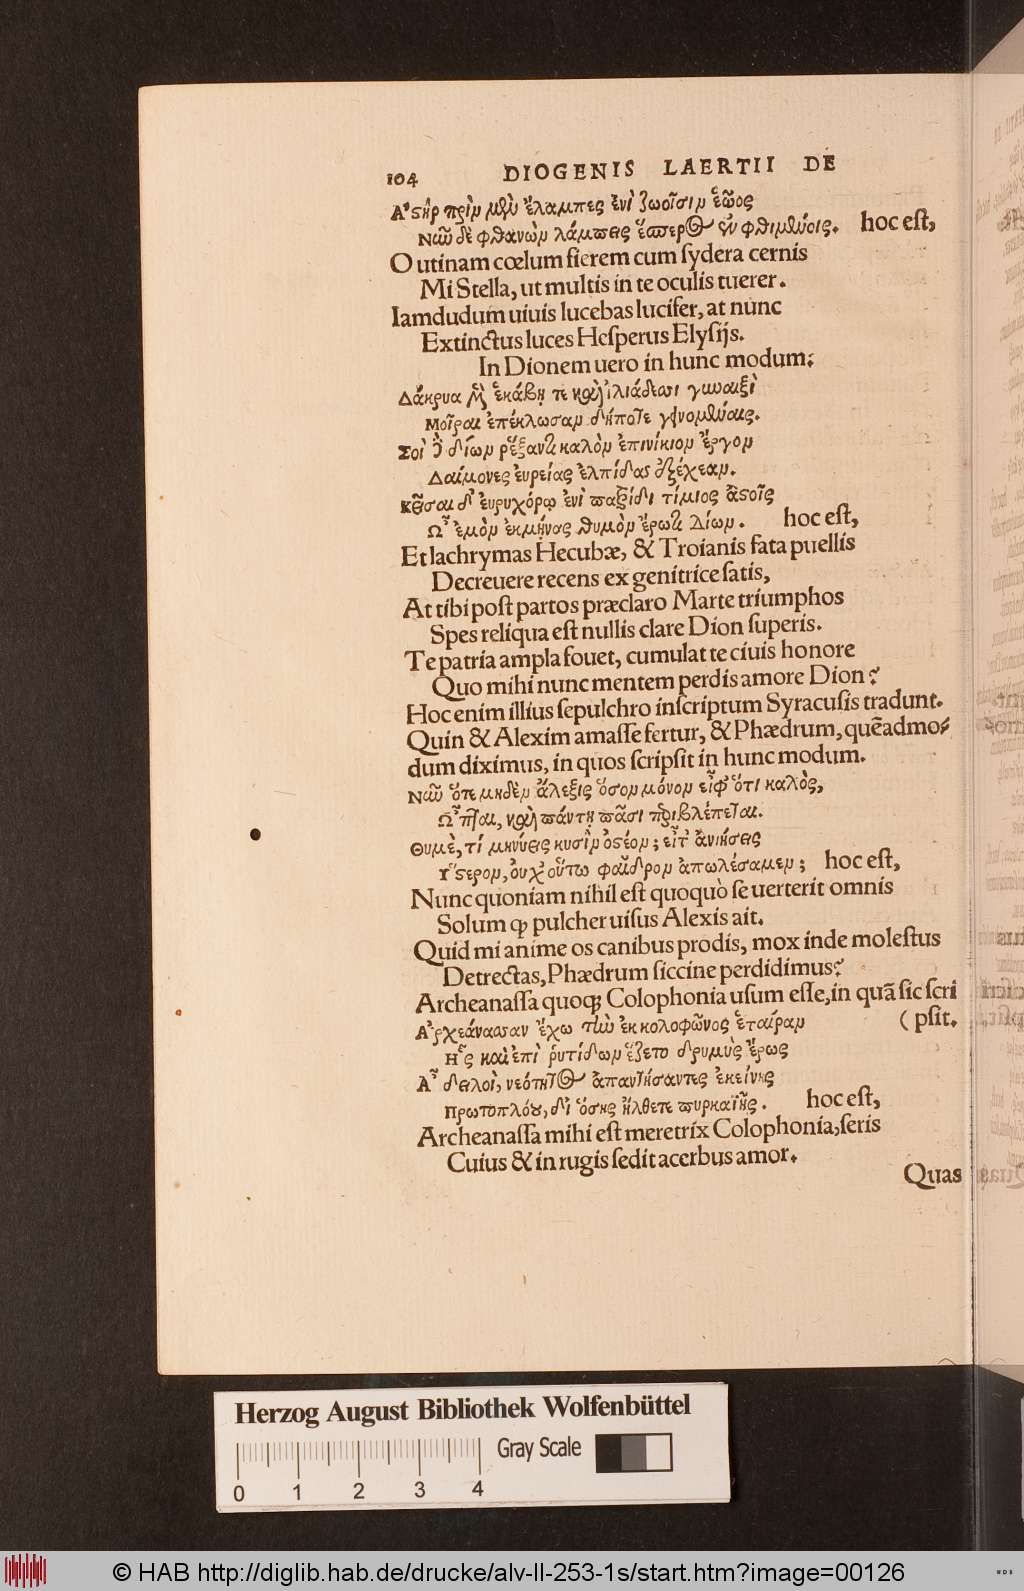 104 DIOGENIS LAERTII DE
Ἀστὴρ πρὶν μὲν ἔλαμπες ἐνὶ ζωοῖσιν ἑῶος
Νῦν δὲ φθανὼν λάμπεις ἕσπερος ἐν φθιμένοις. hoc est,
O utinam cœlum fierem cum sydera cernis
Mi Stella, ut multis in te oculis tuerer.
Iamdudum uiuis lucebas lucifer, at nunc
Extinctus luces Hesperus Elysijs.
In Dionem uero in hunc modum:
Δάκρυα μὲν ἑκάβῃ τε καὶ ἰλιάδεσσι γυναιξὶ
Μοῖραι ἐπέκλωσαν δήποτε γεινομέναις.
Σοὶ δὲ δίων ῥέξαντι καλὸν ἐπινίκιον ἔργον
Δαίμονες ἐυρείας ἐλπίδας ἐξέχεαν.
Κεῖσαι δ' ἐυρυχόρῳ ἐνὶ πατρίδι τίμιος ἀστοῖς
Ὦ ἐμὸν ἐκμήνας θυμὸν ἔρωτι Δίων. hoc est,
Et lachrymas Hecubæ, & Troianis fata puellis
Decreuere recens ex genitrice satis,
At tibi post partos præclaro Marte triumphos
Spes reliqua est nullis clare Dion superis.
Te patria ampla fouet, cumulat te ciuis honore
Quo mihi nunc mentem perdis amore Dion?
Hoc enim illius sepulchro inscriptum Syracusis tradunt.
Quin & Alexim amasse fertur, & Phædrum, quẽadmo⸗
dum diximus, in quos scripsit in hunc modum.
Νῦν ὅτε μηδὲν ἄλεξις ὅσον μόνον εἶφ' ὅτι καλὸς,
Ὦπται, καὶ πάντῃ πᾶσι περιβλέπεται.
Θυμὲ, τί μηνύεις κυσὶν ὀστέον; εἶτ' ἀνιήσεις
Ὕστερον, ὀυχ οὕτω φαῖδρον ἀπωλέσαμεν; hoc est,
Nunc quoniam nihil est quoquò se uerterit omnis
Solum qꝫ pulcher uisus Alexis ait.
Quid mi anime os canibus prodis, mox inde molestus
Detrectas, Phædrum siccine perdidimus?
Archeanassa quoqꝫ Colophonia usum esse, in quã sic scri
Ἀρχεάνασσαν ἔχω τὴν ἐκ κολοφῶνος ἑταίραν (psit.
Ἧς καὶ ἐπὶ ῥυτίδων ἕζετο δρυμὺς ἔρως
Ἆ δειλοὶ, νεότητος ἀπαντήσαντες ἐκείνης
Πρωτοπλόου, δι' ὅσης ἤλθετε πυρκαϊῆς. hoc est,
Archeanassa mihi est meretrix Colophonia, seris
Cuius & in rugis sedit acerbus amor.
Quas
Herzog August Bibliothek Wolfenbüttel
Gray Scale
0 1 2 3 4
© HAB http://diglib.hab.de/drucke/alv-ll-253-1s/start.htm?image=00126